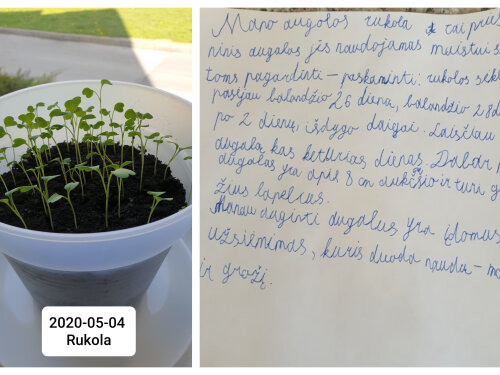 2020-05-04
Rukola
Mano augalas rukola tai
ninis augalas jis naudojamas maistui
toms pagardinti - paskaninti: rukolos
pasėjau balandžio 26 dieną, balandžio 28
po 2 dienų, išdygo daigai. Laisčiau
augalą kas ketvirias dienas. Dabar
augalas yra apie 8 cm aukščio ir turi
žius lapelius.
Manau auginti augalus yra įdomus
užsiėmimas, kuris duoda naudą -
ir grožį.